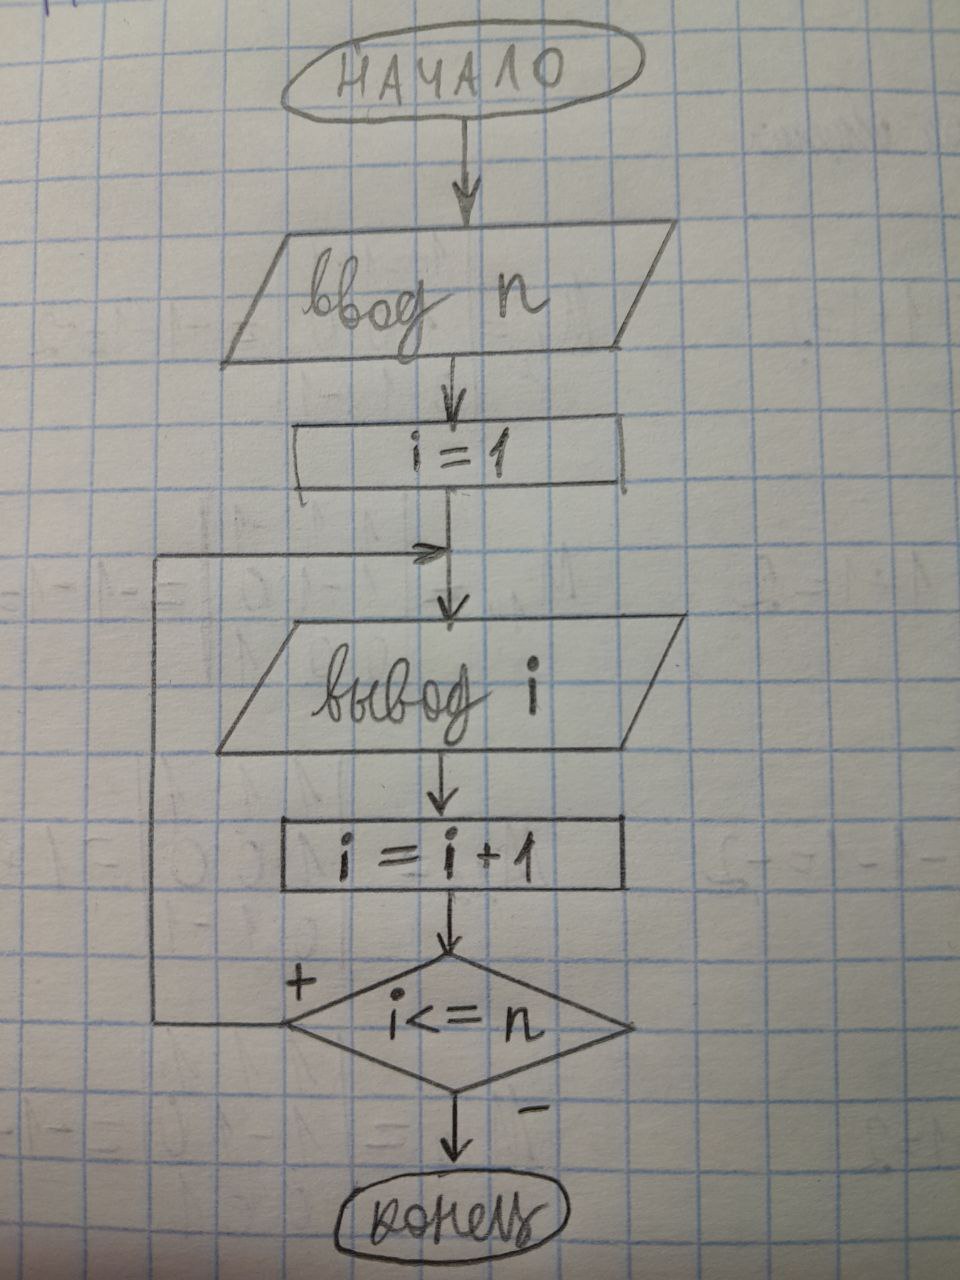 НАЧАЛО
ввод n
i = 1
вывод i
i = i + 1
+
i <= n
-
конец